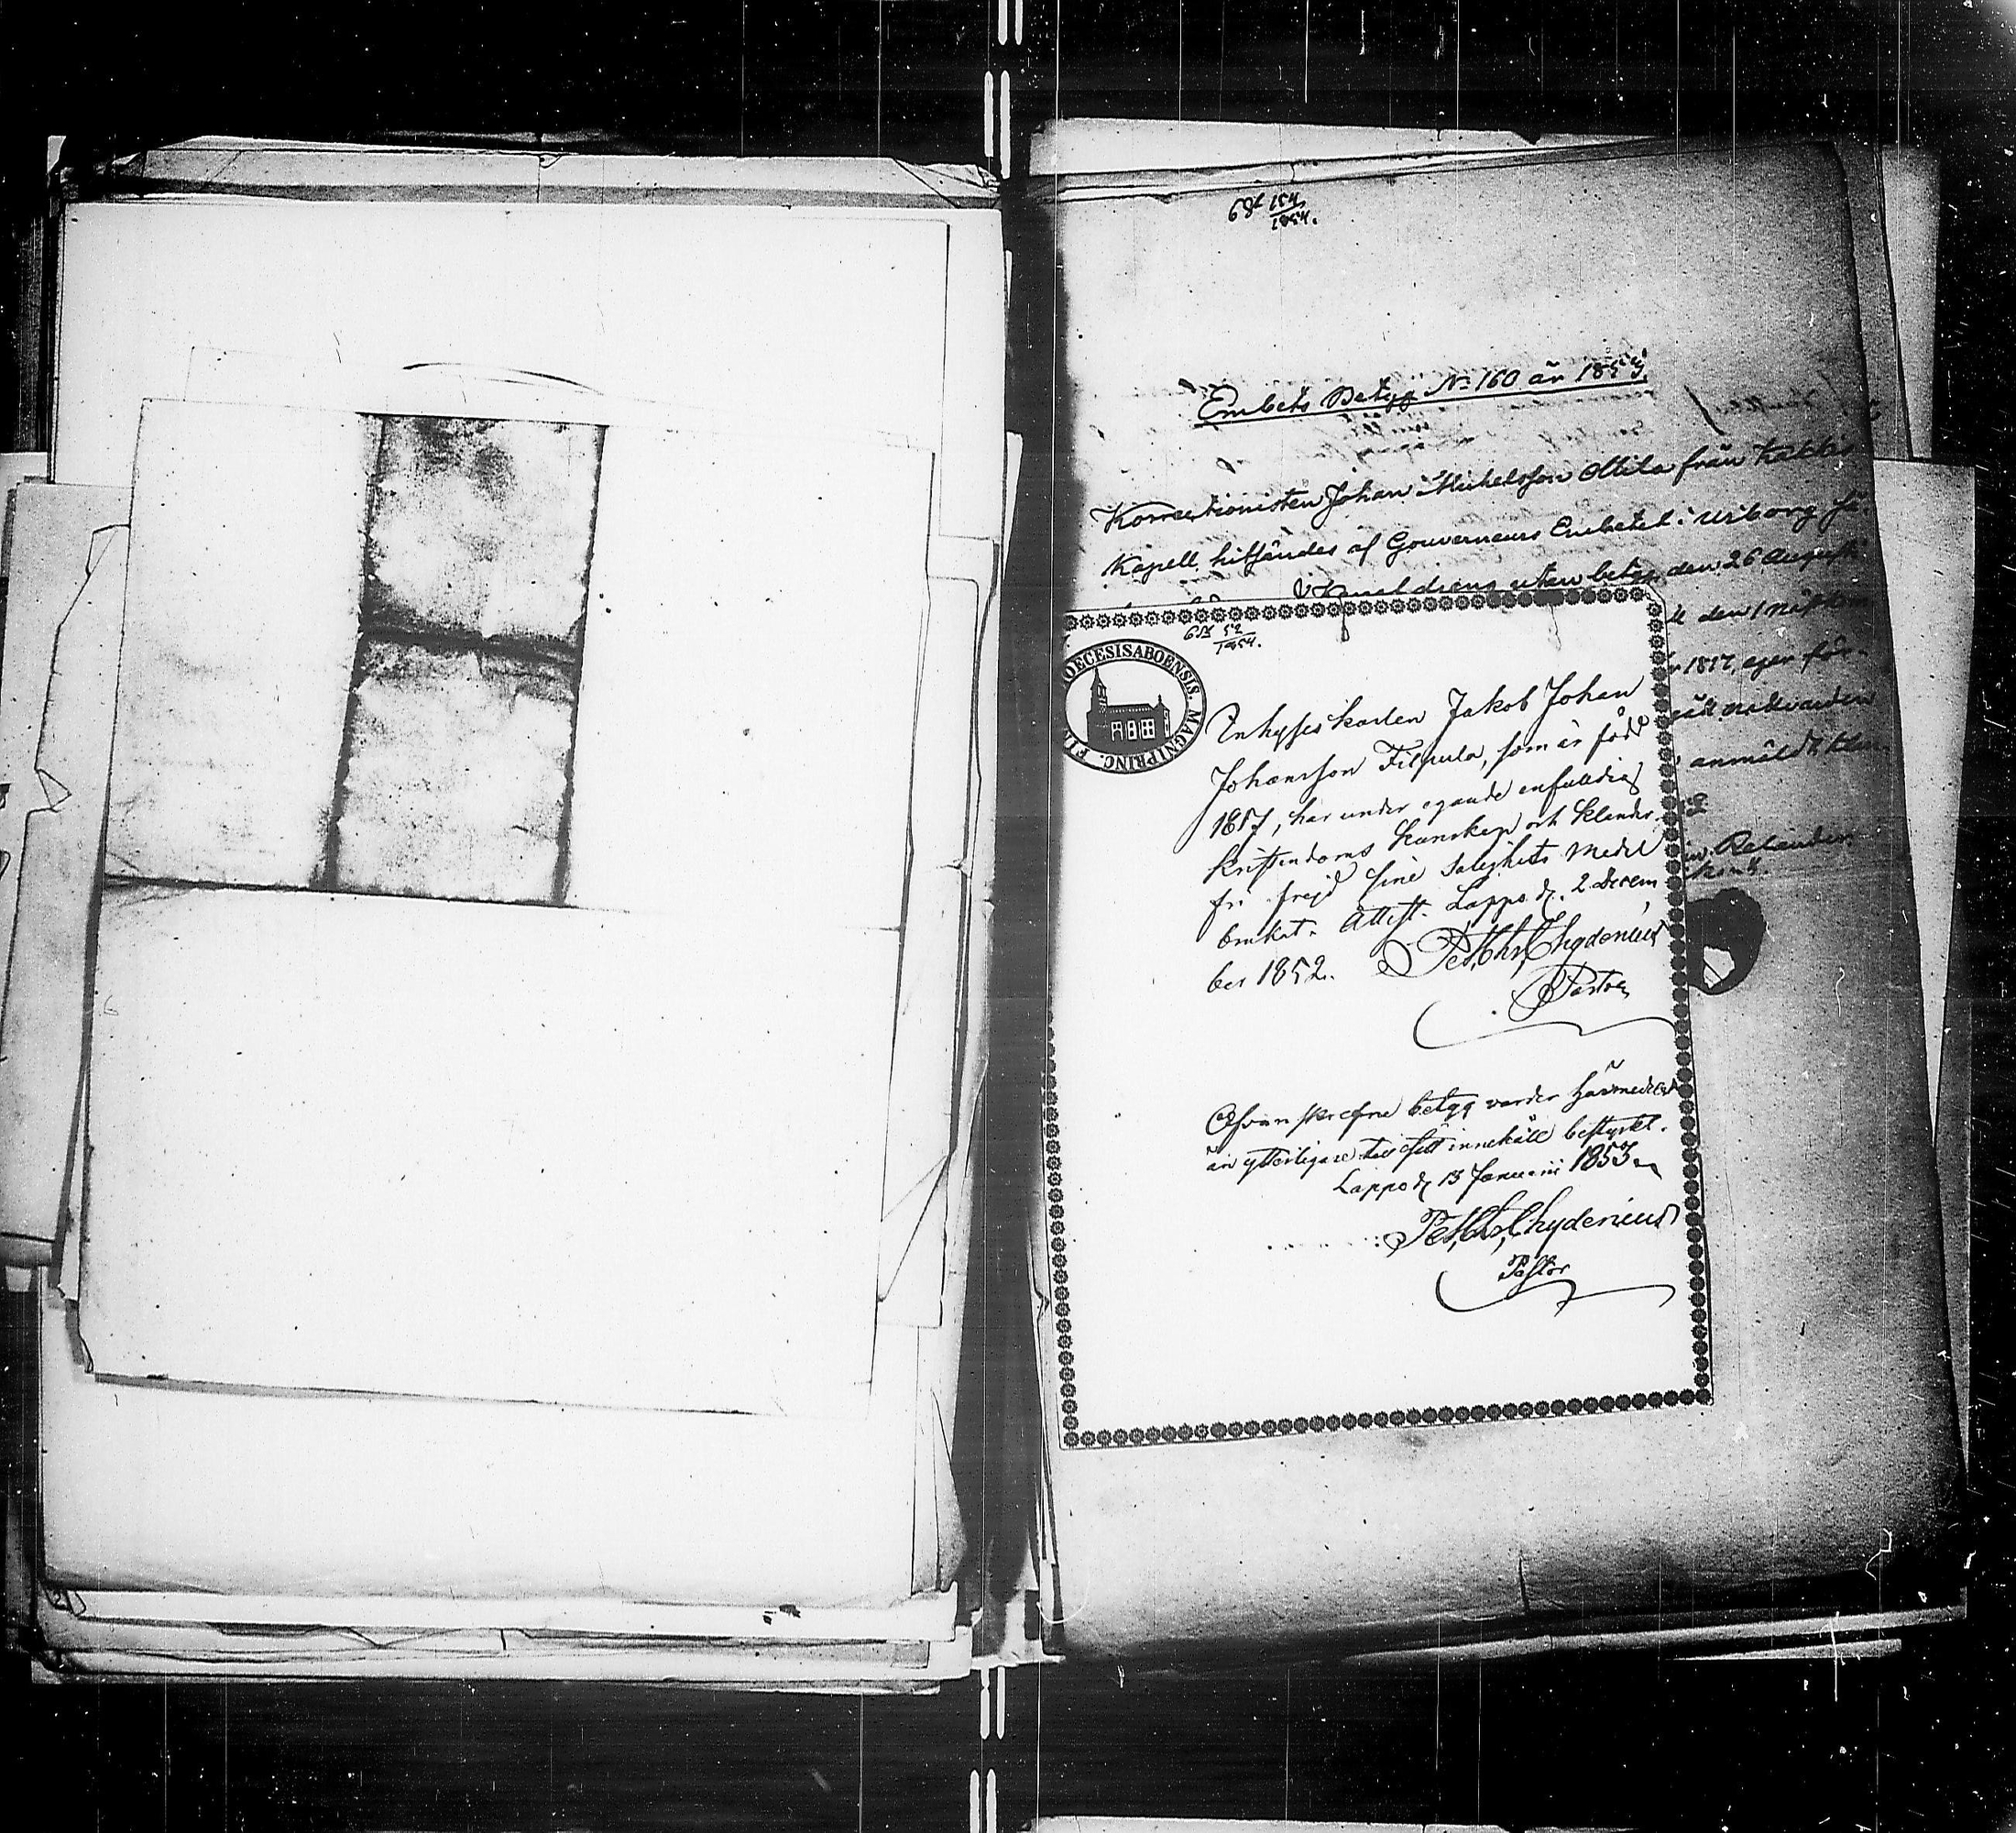 154
1854.
Embets Betyg No 160 år 1853.
Korrectionisten Johan Mickelsson Ollila från Kakkis
Kapell, hitsändes af Gouverneurs Embetet i Wiborg så
utan betyg den 26 Augusti
den 1
1817, eger för-
nattvarden
anmäldt
Relander.
52
1854.
DIOECESIS ABOENSIS. MAGNI PRINC. FIN
Inhyses karlen Jakob Johan
Johansson Filpula, som är född
1817, har under egande enfaldig
Kristendoms kunskap och klander-
fri frejd sine salighets medel
brukat. Attest. Lappo d. 2 Decem-
ber 1852. Pet. Chr. Chydenius
Pastor
Ofvanskrefne betyg varder härmedelst
än ytterligare till sitt innehåll bestyrkt.
Lappo d. 13 Januarii 1853.
Pet. Chr. Chydenius
Pastor